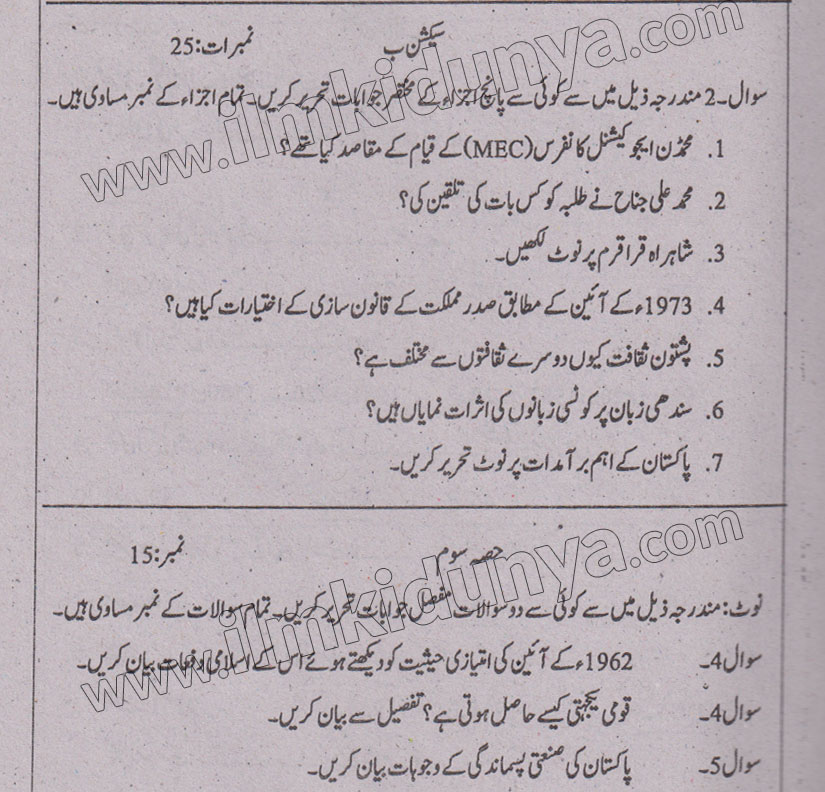 سیکشن ب نمبرات:25
سوال۔2 مندرجہ ذیل میں سے کوئی سے پانچ اجزاء کے مختصر جوابات تحریر کریں۔ تمام اجزاء کے نمبر مساوی ہیں۔
1. محمڈن ایجوکیشنل کانفرس (MEC) کے قیام کے مقاصد کیا تھے؟
2. محمد علی جناح نے طلبہ کو کس بات کی تلقین کی؟
3. شاہراہ قراقرم پر نوٹ لکھیں۔
4. 1973ء کے آئین کے مطابق صدر مملکت کے قانون سازی کے اختیارات کیا ہیں؟
5. پشتون ثقافت کیوں دوسرے ثقافتوں سے مختلف ہے؟
6. سندھی زبان پر کونسی زبانوں کی اثرات نمایاں ہیں؟
7. پاکستان کے اہم برآمدات پر نوٹ تحریر کریں۔
www.ilmkidunya.com
حصہ سوم نمبر:15
نوٹ: مندرجہ ذیل میں سے کوئی سے دو سوالات مفصل جوابات تحریر کریں۔ تمام سوالات کے نمبر مساوی ہیں۔
سوال4۔ 1962ء کے آئین کی امتیازی حیثیت کو دیکھتے ہوئے اس کے اسلامی دفعات بیان کریں۔
سوال4۔ قومی یکجہتی کیسے حاصل ہوتی ہے؟ تفصیل سے بیان کریں۔
سوال5۔ پاکستان کی صنعتی پسماندگی کے وجوہات بیان کریں۔
www.ilmkidunya.com